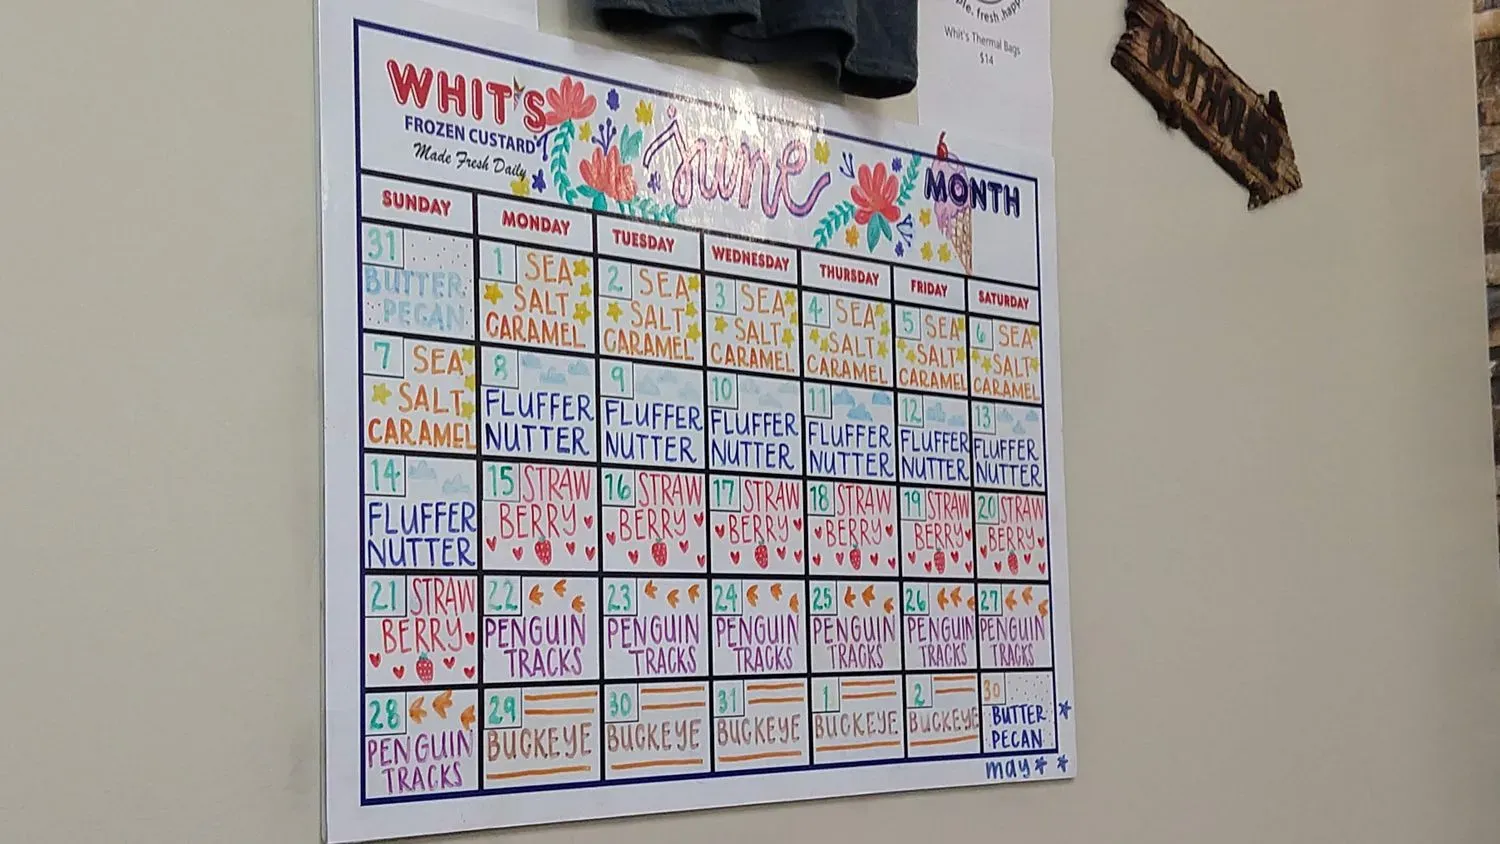 ple. fresh. happ
Whit's Thermal Bags
$14
OUTHOUSE
WHIT'S
FROZEN CUSTARD
Made Fresh Daily
june
MONTH
SUNDAY
MONDAY
TUESDAY
WEDNESDAY
THURSDAY
FRIDAY
SATURDAY
31
BUTTER
PECAN
1 SEA
SALT
CARAMEL
2 SEA
SALT
CARAMEL
3 SEA
SALT
CARAMEL
4 SEA
SALT
CARAMEL
5 SEA
SALT
CARAMEL
6 SEA
SALT
CARAMEL
7 SEA
SALT
CARAMEL
8
FLUFFER
NUTTER
9
FLUFFER
NUTTER
10
FLUFFER
NUTTER
11
FLUFFER
NUTTER
12
FLUFFER
NUTTER
13
FLUFFER
NUTTER
14
FLUFFER
NUTTER
15 STRAW
BERRY
16 STRAW
BERRY
17 STRAW
BERRY
18 STRAW
BERRY
19 STRAW
BERRY
20 STRAW
BERRY
21 STRAW
BERRY
22
PENGUIN
TRACKS
23
PENGUIN
TRACKS
24
PENGUIN
TRACKS
25
PENGUIN
TRACKS
26
PENGUIN
TRACKS
27
PENGUIN
TRACKS
28
PENGUIN
TRACKS
29
BUCKEYE
30
BUCKEYE
31
BUCKEYE
1
BUCKEYE
2
BUCKEYE
30
BUTTER
PECAN
may